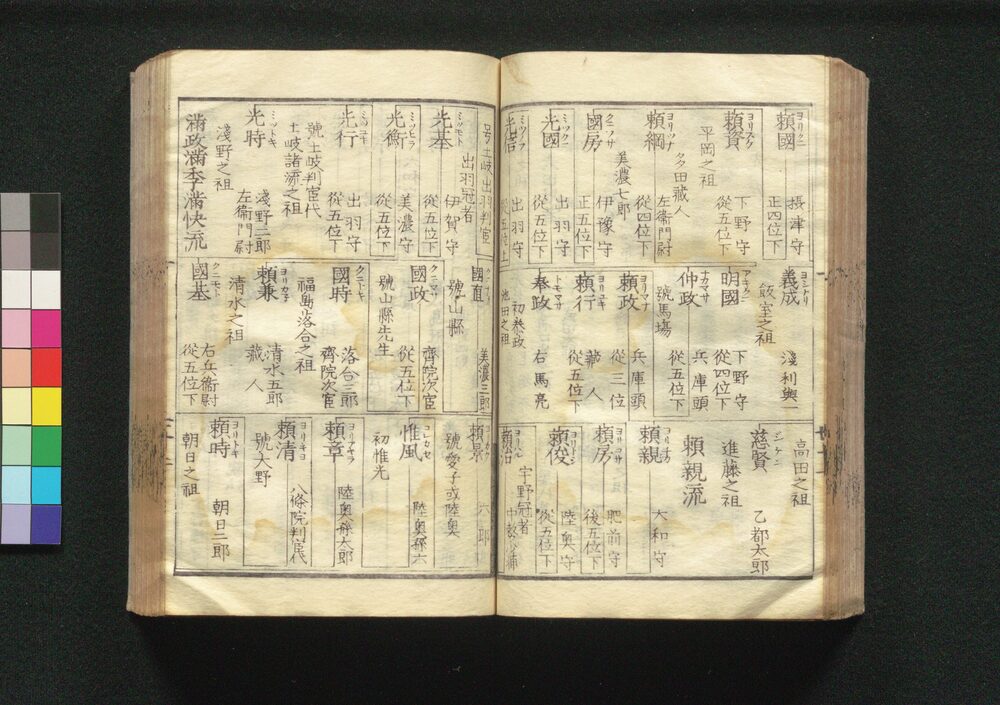 ヨリクニ
頼國 攝津守 正四位下
ヨリスケ
頼資 下野守 從五位下
平岡之祖
多田藏人
ヨリツナ
頼綱 左衞門尉 從四位下
美濃七郎
クニフサ
國房 伊豫守 正五位下
ミツクニ
光國 出羽守 從五位下
光信 出羽守 從五位上
ヨシナリ
義成 淺利與一
飯室之祖
アキクニ
明國 下野守 從四位下
ナカマサ
仲政 兵庫頭 從五位下
號馬場
ヨリマサ
頼政 兵庫頭 從三位
ヨリユキ
頼行 藏人 從五位下
トモマサ
奉政 右馬亮
初泰政
池田之祖
高田之祖
ジケン
慈賢 乙部太郎
進藤之祖
頼親流
ヨリチカ
頼親 大和守
ヨリフサ
頼房 肥前守 後五位下
ヨリトシ
頼俊 陸奥守 從五位下
宇野冠者
頼治 中務少輔
号土岐出羽判官
出羽冠者
ミツモト
光基 伊賀守 從五位下
ミツヒラ
光衡 美濃守 從五位下
ミツユキ
光行 出羽守 從五位下
號土岐判官代
土岐諸流之祖
ミツトキ
光時 淺野二郎 左衞門尉
淺野之祖
滿政滿季滿快流
國直 美濃三郎
號山縣
クニマサ
國政 齊院次官 從五位下
號山縣先生
クニトキ
國時 落合三郎 齊院次官
福島落合之祖
ヨリカネ
頼兼 清水五郎 藏人
清水之祖
クニモト
國基 右兵衞尉 從五位下
頼景 六郎
號愛子或陸奥
コレカセ
惟風 陸奥孫六
初惟光
ヨリアキラ
頼章 陸奥孫太郎
ヨリキヨ
頼清 八條院判官代
號大野
ヨリトキ
頼時 朝日二郎
朝日之祖